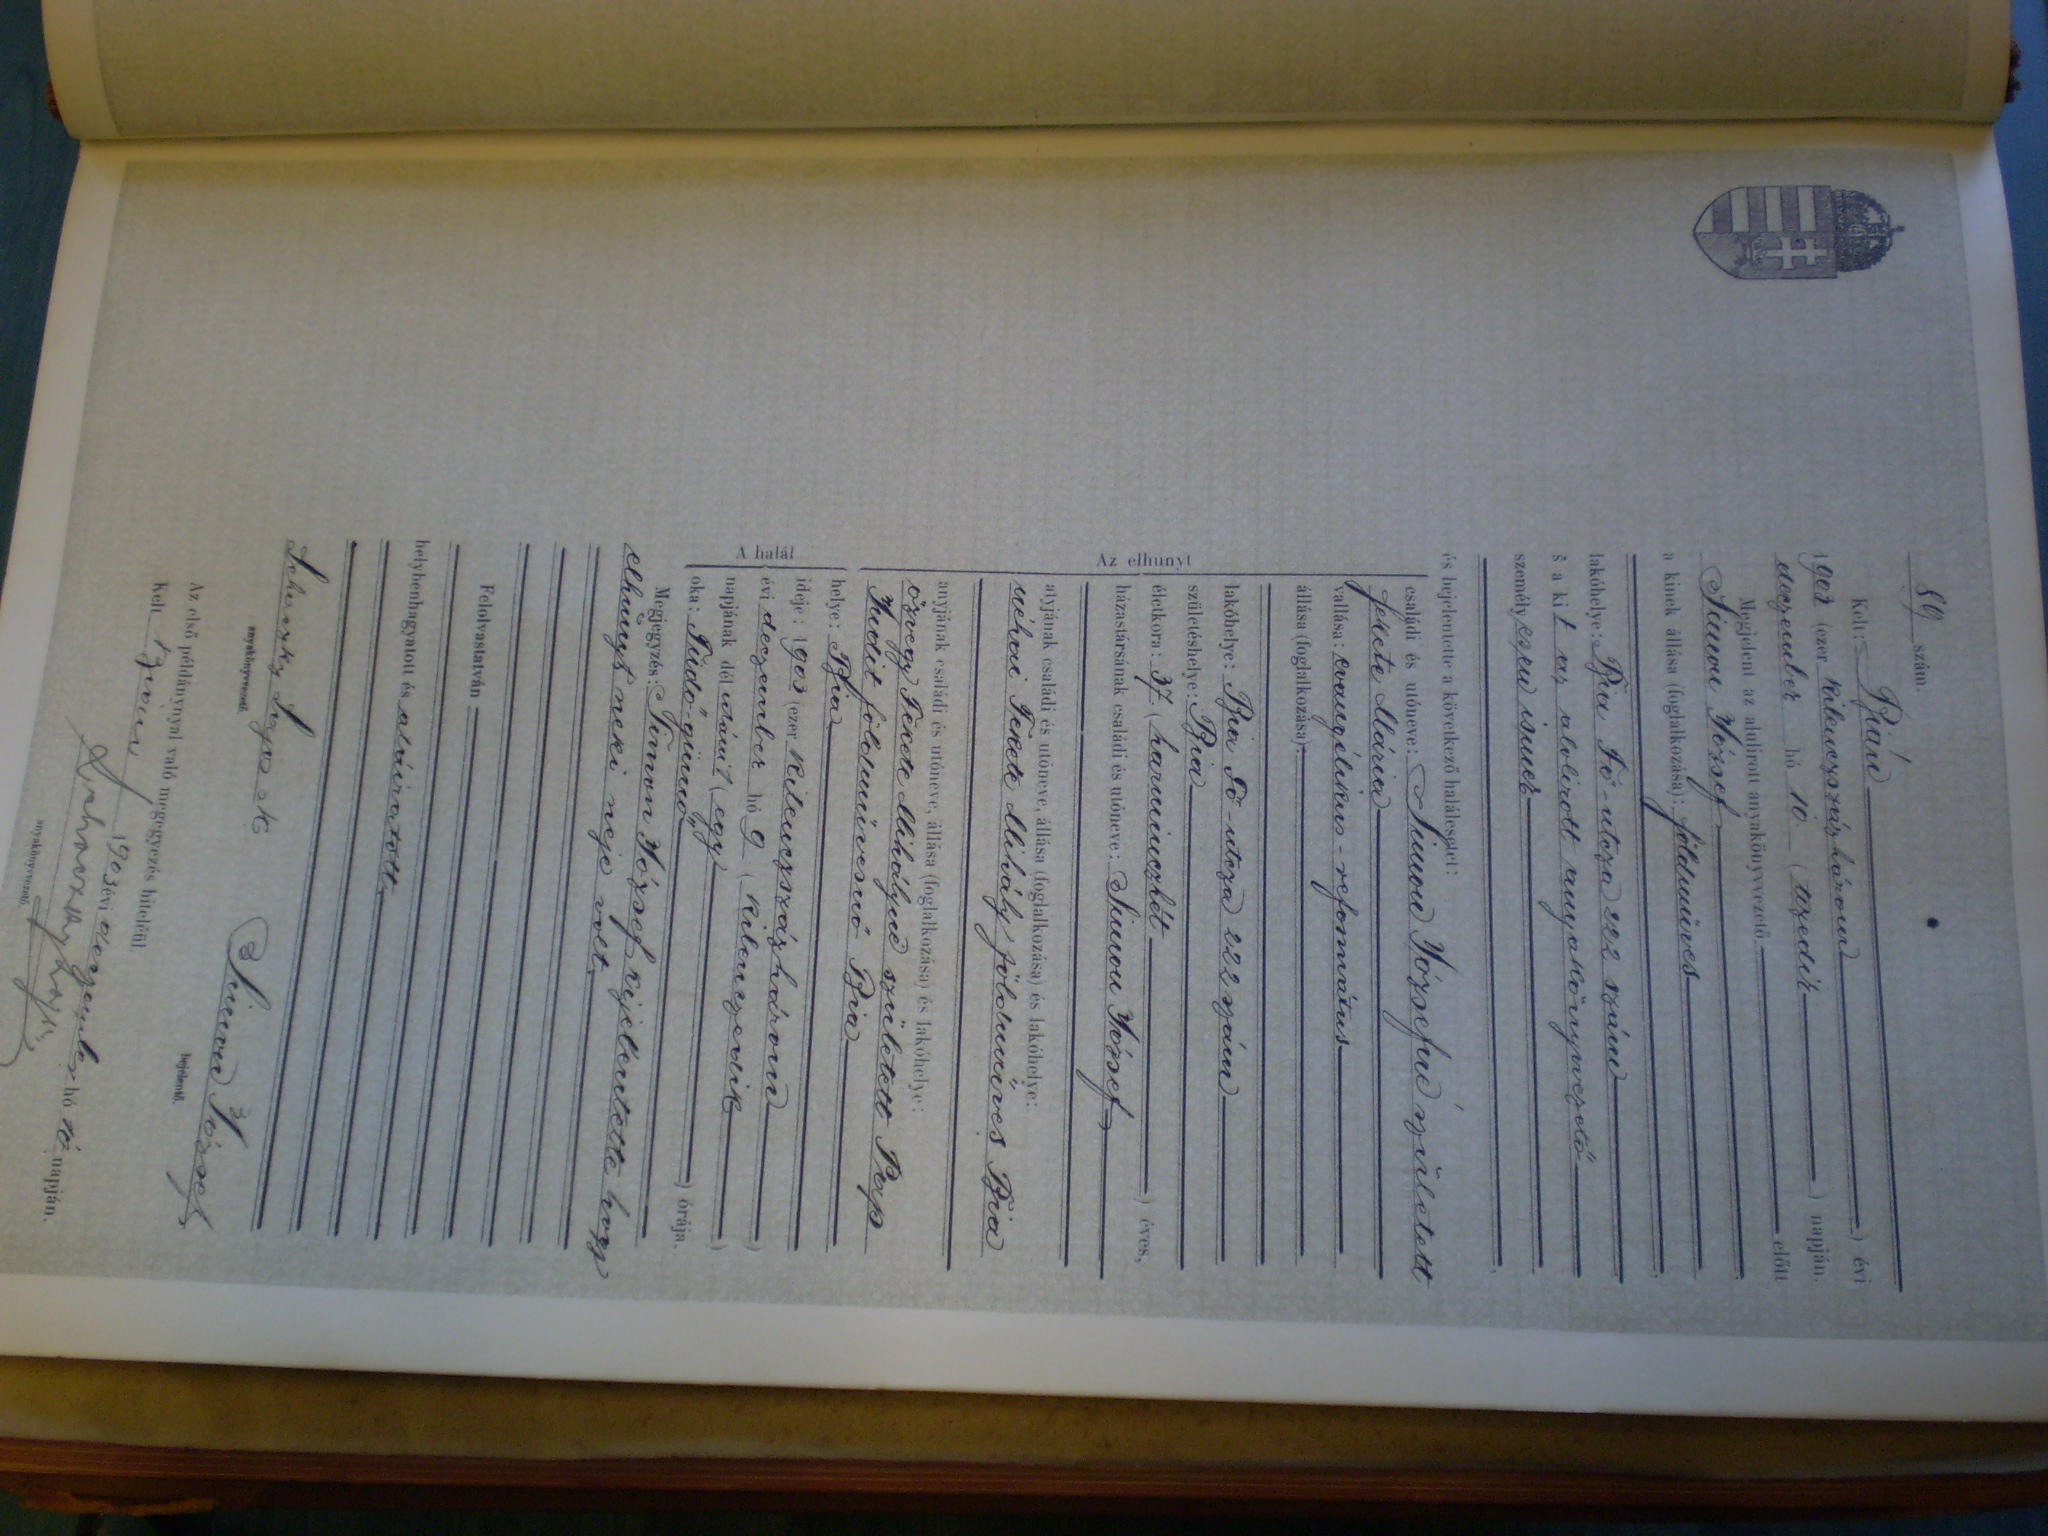 89 szám.
Kelt: Bián
1903 (ezer kilenczszázhárom) évi
deczember hó 10. (tizedik) napján.
Megjelent az alulirott anyakönyvezető előtt
Simon József,
a kinek állása (foglalkozása): földmüves,
lakóhelye: Bia Fő-utcza 222 szám
s a kit az alólirott anyakönyvezető
személyesen ismer,
és bejelentette a következő halálesetet:
Az elhunyt
családi és utóneve: Simon Józsefné született
Fekete Mária
vallása: evangélikus-református
állása (foglalkozása):
lakóhelye: Bia Fő-utcza 222 szám
születéshelye: Bia
életkora: 37 (harminczhét) éves,
házastársának családi és utóneve: Simon József
atyjának családi és utóneve, állása (foglalkozása) és lakóhelye:
néhai Fekete Mihály földmüves Bia
anyjának családi és utóneve, állása (foglalkozása) és lakóhelye:
özvegy Fekete Mihályné született Pap
Judit földmüvesnő Bia
A halál
helye: Bia
ideje: 1903 (ezer kilenczszázhárom)
évi deczember hó 9 (kilenczedik)
napjának délutáni 1 (egy) órája.
oka: Tüdő-gümő
Megjegyzés: Simon József kijelentette hogy
elhúnyt neki neje volt.
Felolvastatván
helybenhagyatott és aláiratott.
Lajos sk Simon József
anyakönyvvezető. bejelentő.
Az első példánynyal való megegyezés hiteléül.
Kelt Bián 1903 évi deczember hó 10 napján.
anyakönyvvezető.